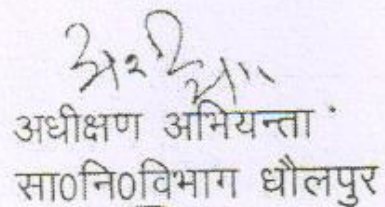 अधीक्षण अभियन्ता
सा0नि0विभाग धौलपुर